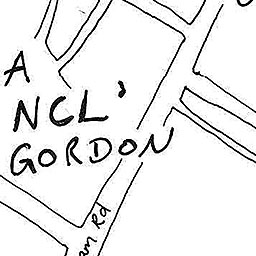 A
NCL'
GORDON
am Rd